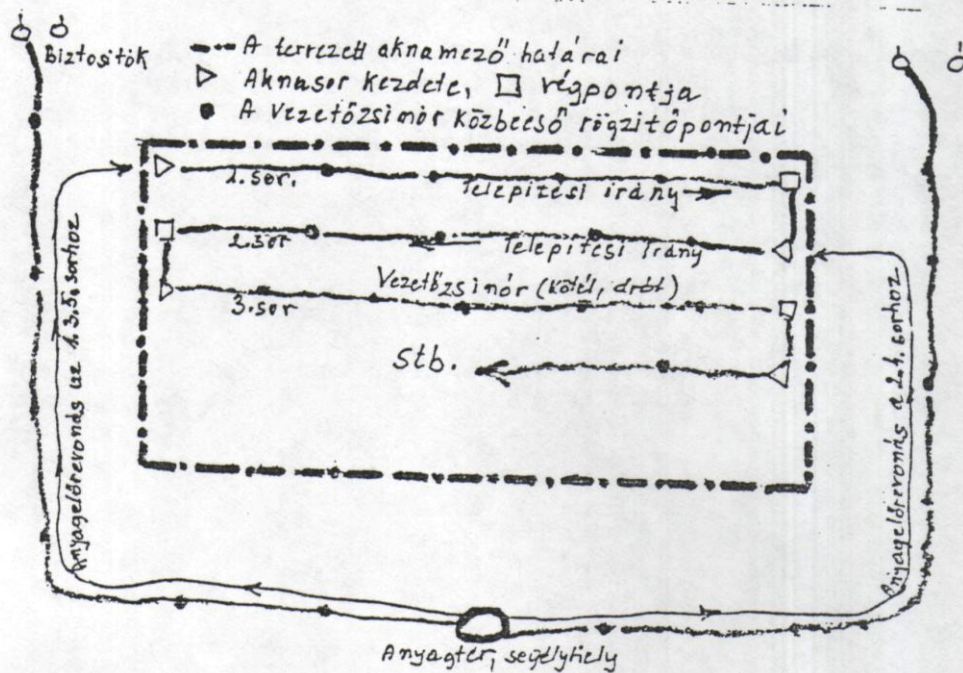 Biztosítók
A tervezett aknamező határai
Aknasor kezdete, végpontja
A vezetőzsinór közbeeső rögzítőpontjai
1. sor.
Telepítési irány
2. sor
Telepítési irány
Vezetőzsinór (kötél, drót)
3. sor
stb.
Anyagelőrevonás az 1.3.5. sorhoz
Anyagelőrevonás a 2.4. sorhoz
Anyagtér, segélyhely